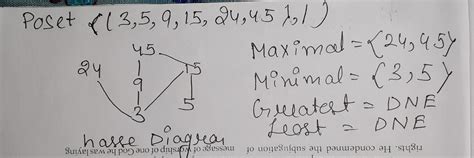 Poset {(3,5,9,15,24,45},/)
45
24
15
9
3
5
Hasse Diagram
Maximal = {24,45}
Minimal = {3,5}
Greatest = DNE
Least = DNE
rights. He condemned the subjugation of
message of worship of one God he was laying